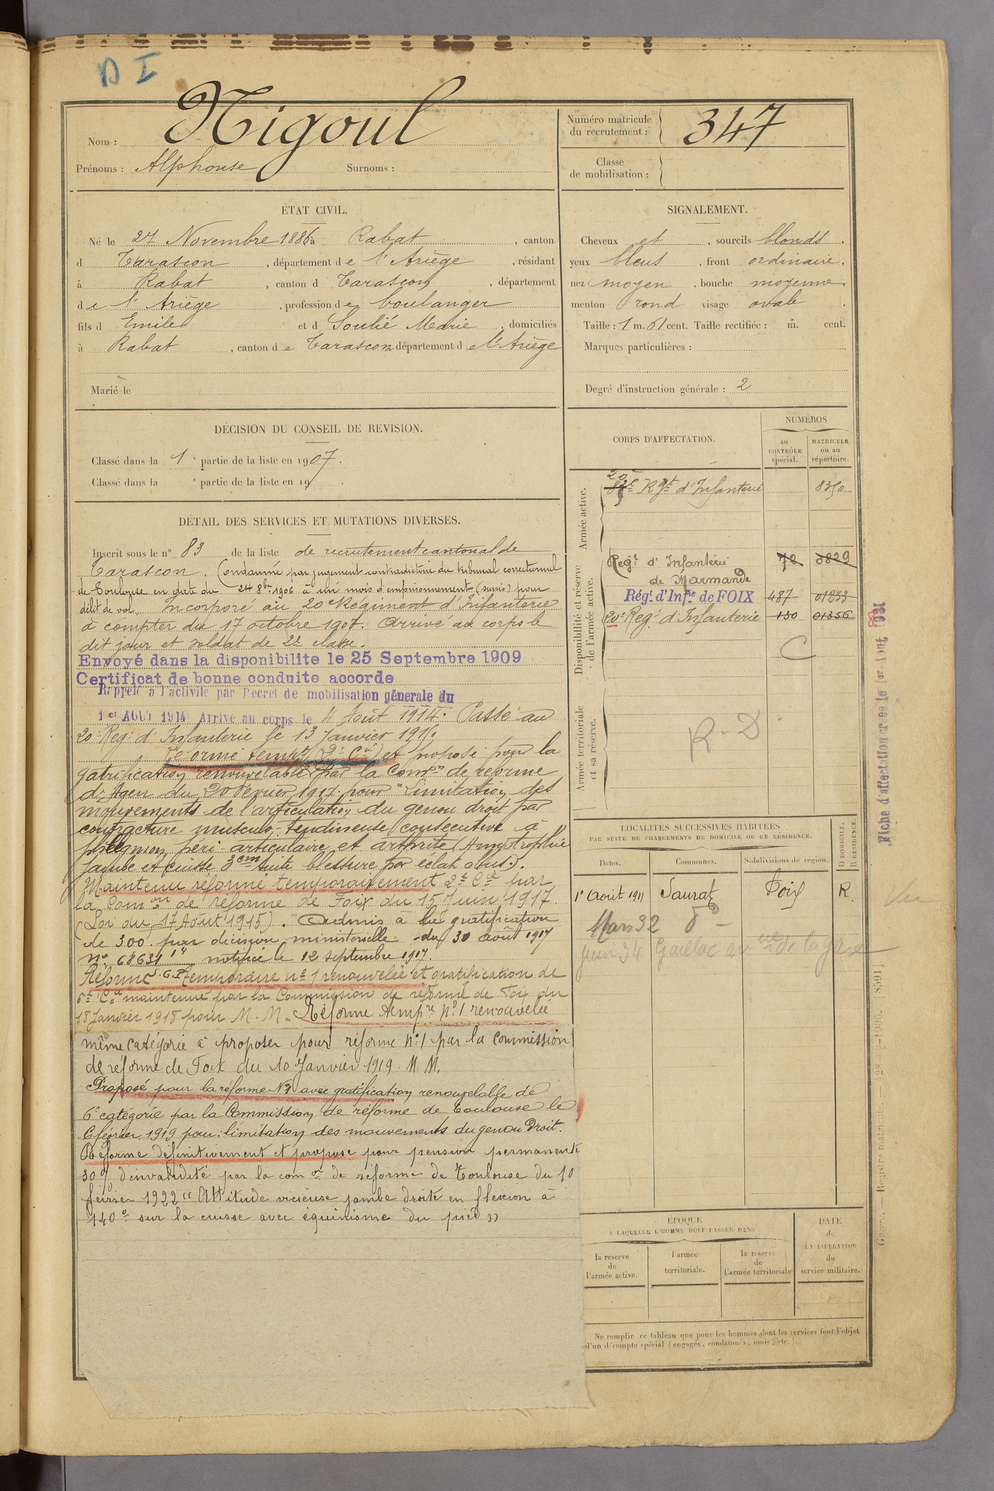 D I
Nom : Nigoul
Prénoms : Alphonse Surnoms :
Numéro matricule
du recrutement : 347
Classe
de mobilisation :
ÉTAT CIVIL.
Né le 27 Novembre 1886 à Rabat, canton
d Tarascon, département de l'Ariège, résidant
à Rabat, canton d Tarascon, département
de l'Ariège, profession de boulanger
fils d Emile et d Soulié Marie, domiciliés
à Rabat, canton de Tarascon, département de l'Ariège
Marié le
SIGNALEMENT.
Cheveux et, sourcils blonds.
yeux bleus, front ordinaire,
nez moyen, bouche moyenne
menton rond visage ovale.
Taille : 1 m. 61 cent. Taille rectifiée : m. cent.
Marques particulières :
Degré d'instruction générale : 2
DÉCISION DU CONSEIL DE REVISION.
Classé dans la 1e partie de la liste en 1907.
Classé dans la e partie de la liste en 19
DÉTAIL DES SERVICES ET MUTATIONS DIVERSES.
Inscrit sous le n° 83 de la liste de recrutement cantonal de
Tarascon. Condamné par jugement contradictoire du tribunal correctionnel
de Toulouse en date du 24 8bre 1906 à un mois d'emprisonnement (sursis) pour
délit de vol. Incorporé au 20e Régiment d'Infanterie
à compter du 17 octobre 1907. Arrivé au corps le
dit jour et soldat de 2e classe.
Envoyé dans la disponibilite le 25 Septembre 1909
Certificat de bonne conduite accorde
Rappelé à l'activité par Décret de mobilisation générale du
1er AOUT 1914 Arrivé au corps le 4 Août 1914. Passé au
20e Reg. d'Infanterie le 13 Janvier 191
Réformé tempre (2e Cie) et proposé pour la
gratification renouvelable par la Comon de réforme
d'Agen du 20 février 1917 pour "Limitation des
mouvements de l'articulation du genou droit par
contracture musculo-tendineuse consécutive à
phlegmon péri articulaire et arthrite (Amyotrophie
jambe et cuisse 3cm suite blessure par éclat obus).
Maintenu réformé temporairement 2e Cie par
la Comon de réforme de Foix du 15 Juin 1917.
(Loi du 17 Août 1915). Admis à la gratification
de 300. par décision ministérielle du 30 août 1917
N° 68631 notifiée le 12 septembre 1917.
Réforme temporaire n° 1 renouvelée et gratification de
6e Cie maintenue par la Commission de réforme de Foix du
18 Janvier 1918 pour M. M. Réforme tempre N° 1 renouvelée
même catégorie à proposer pour réforme n° 1 par la commission
de réforme de Foix du 10 Janvier 1919. M. M.
Proposé pour la réforme N°1 avec gratification renouvelable de
6e catégorie par la Commission de réforme de Toulouse le
6 février 1919 pour : limitation des mouvements du genou Droit.
Réformé définitivement et proposé pour pension permanente
30% d'invalidité par la comon de réforme de Toulouse du 10
février 1922 "Attitude vicieuse jambe droite en flexion à
140° sur la cuisse avec équinisme du pied"
CORPS D'AFFECTATION.
NUMÉROS
AU CONTRÔLE spécial.
MATRICULE ou au répertoire.
Armée active.
20e Regt d'Infanterie 8350
Disponibilité et réserve
de l'armée active.
Regt d'Infanterie
de Marmande 72 3829
Régt d'Infie de FOIX 487 01833
20e Reg. d'Infanterie 130 01356
C
Armée territoriale
et sa réserve.
R-D
LOCALITÉS SUCCESSIVES HABITÉES
PAR SUITE DE CHANGEMENTS DE DOMICILE OU DE RÉSIDENCE.
Dates. Communes. Subdivisions de région.
D. DOMICILE.
R. RÉSIDENCE.
1er Août 1911 Saurat Foix R
Mars 32 do
juin 34 Gaillac
ÉPOQUE
À LAQUELLE L'HOMME DOIT PASSER DANS
la reserve
de
l'armée active.
l'armée
territoriale.
la reserve
de
l'armée territoriale
DATE
de
LA LIBÉRATION
du
service militaire.
Ne remplir ce tableau que pour les hommes dont les services font l'objet
d'un décompte spécial (engagés, condamnés, omis, etc.).
Fiche d'affectation
1er Août